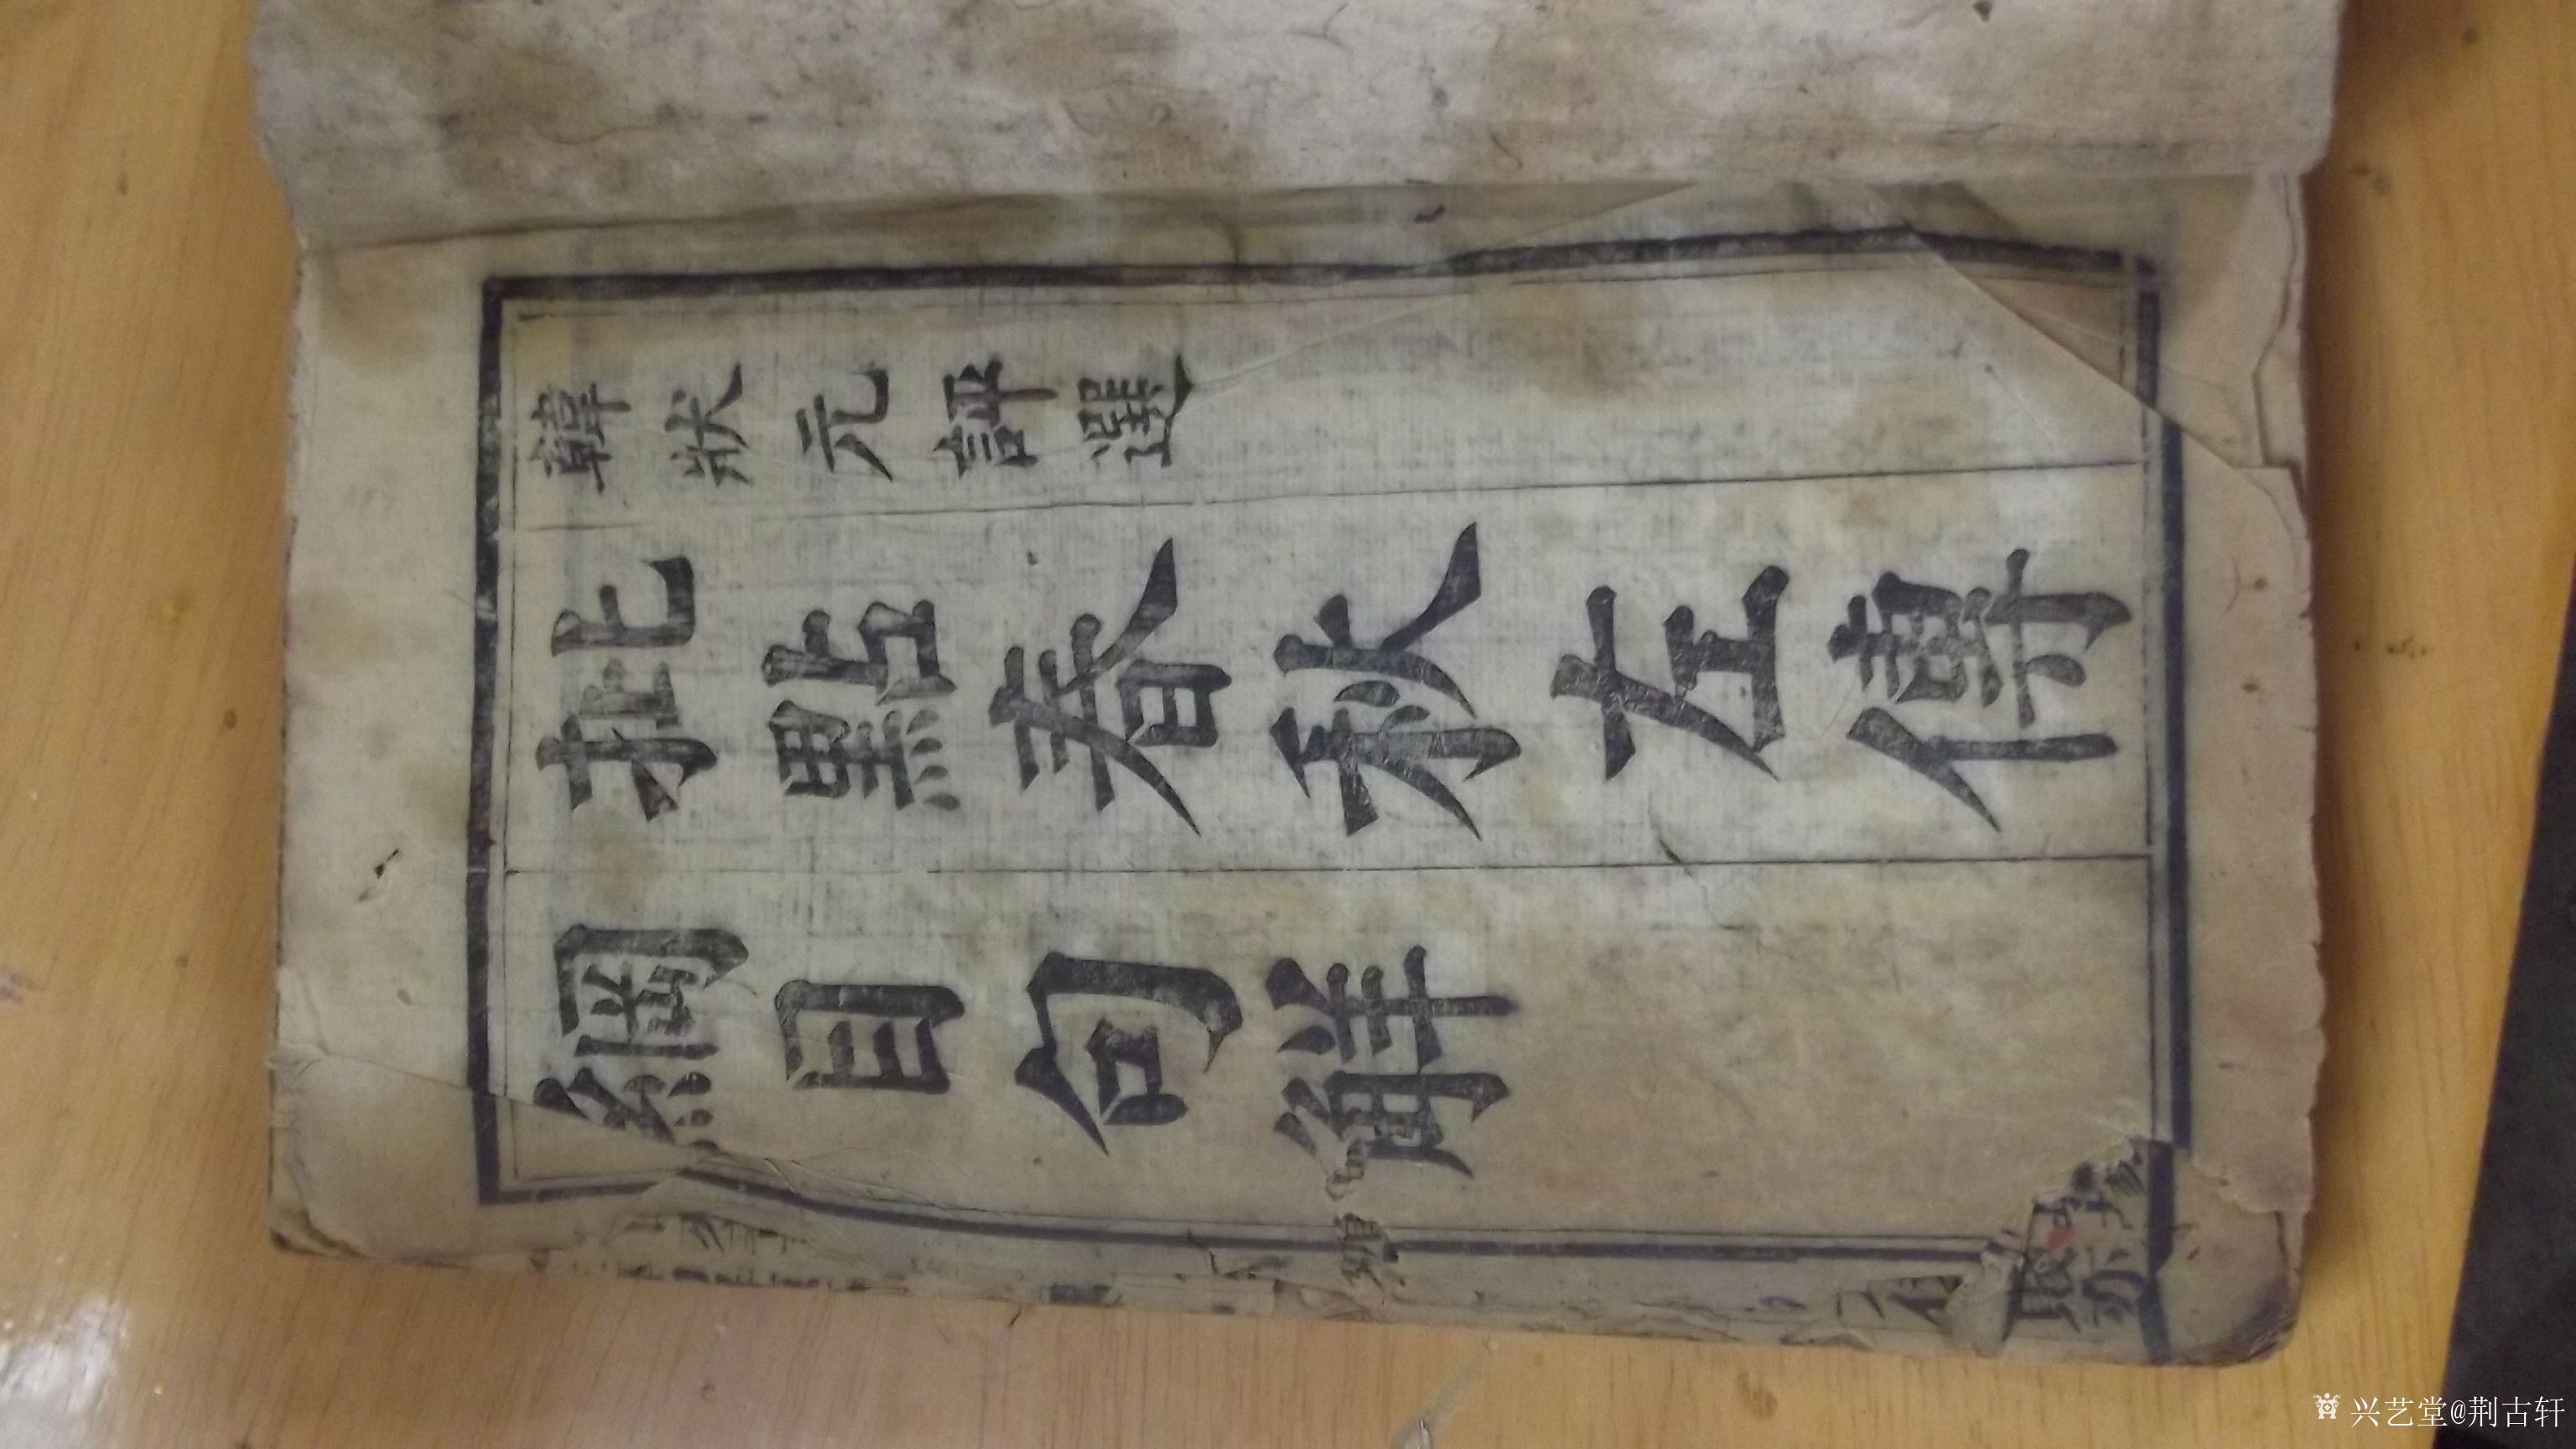 韓狀元評選
批點春秋左傳
綱目句解
兴艺堂@荆古轩